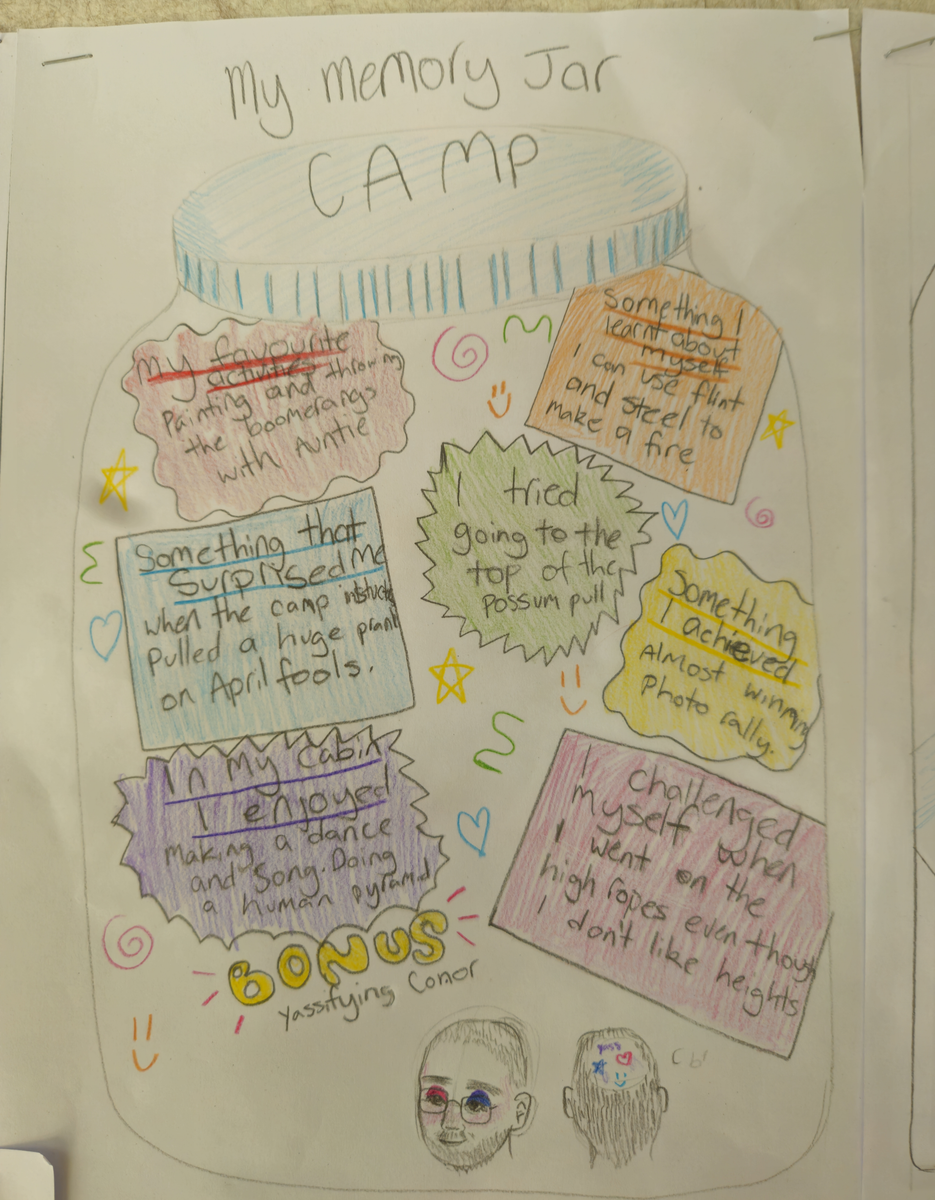 My memory Jar
CAMP
My favourite
activities
Painting and throwing
the boomerangs
with Auntie
Something I
learnt about
myself
I can use flint
and steel to
make a fire
I tried
going to the
top of the
possum pull
Something that
Surprised me
when the camp
pulled a huge prank
on April fools.
Something
I achieved
Almost winning
Photo rally.
In my Cabin
I enjoyed
Making a dance
and song. Doing
a human pyramid
I challenged
myself when
I went on the
high ropes even though
I don't like heights
BONUS
Yassifying Conor
yass